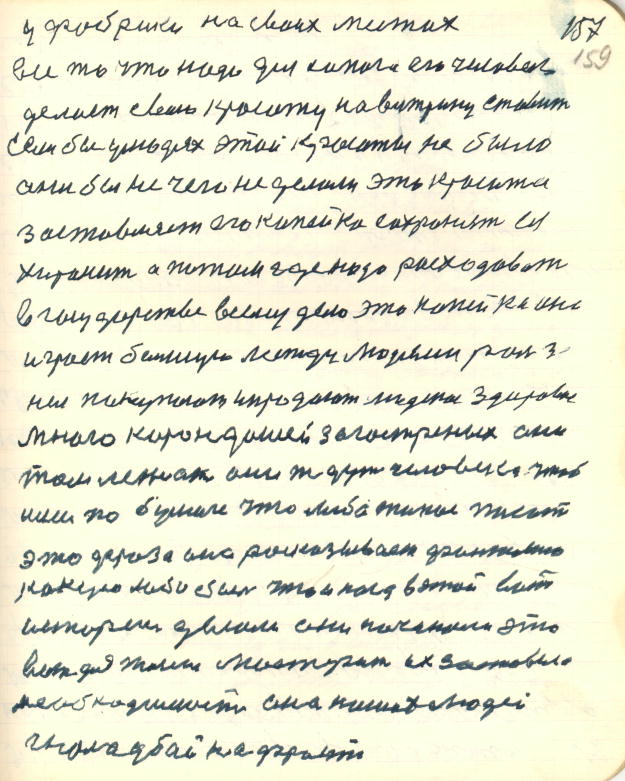 у фабрики на своих местах 157
все то что надо для какого его человек 159
делает свою красоту на витрину ставит
Если бы у людях этой красоты не было
они бы не чего не делали эта красота
заставляет его копейка сохранит ее
хиранит а потом где надо расходоват
в государстве всему дело это копейка она
играет большую между людьми рол з
ней покупают и продают людское здоровие
много корондашей загостреных они
там лежат они ждут человека чтоб
ими по бумаге что либо такое писат
это фраза она росказывает
какую либо что и когда в этой вот
истории делали они начинали это
вот для жизни мастерит их заставела
необходимост она наших людей
гнола бой на фронт